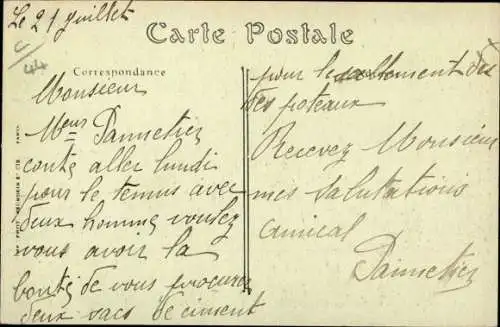 Le 21 Juillet
Carte Postale
Correspondance
Monsieur
Meur Pannetier
conte aller lundi
pour le tennis avec
deux homme voulez
vous avoir la
bonté de vous procurez
deux sacs de ciment
pour le scellement des
des poteaux
Recevez Monsieur
mes salutations
amical
Pannetier